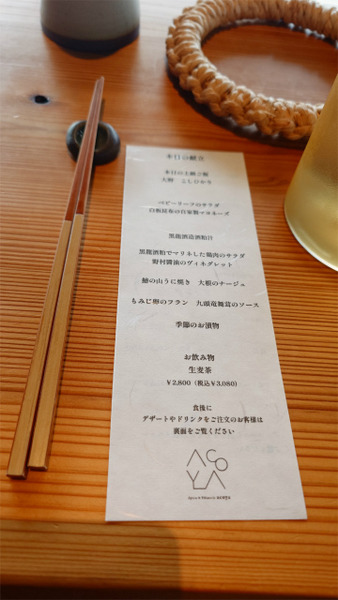 本日の献立
本日の土鍋ご飯
大野 こしひかり
ベビーリーフのサラダ
白板昆布の自家製マヨネーズ
黒龍酒造酒粕汁
黒龍酒粕でマリネした鶏肉のサラダ
野村醤油のヴィネグレット
鰆の山うに焼き 大根のナージュ
もみじ卵のフラン 九頭竜舞茸のソース
季節のお漬物
お飲み物
生麦茶
￥2,800（税込￥3,080）
食後に
デザートやドリンクをご注文のお客様は
裏面をご覧ください
ACOYA